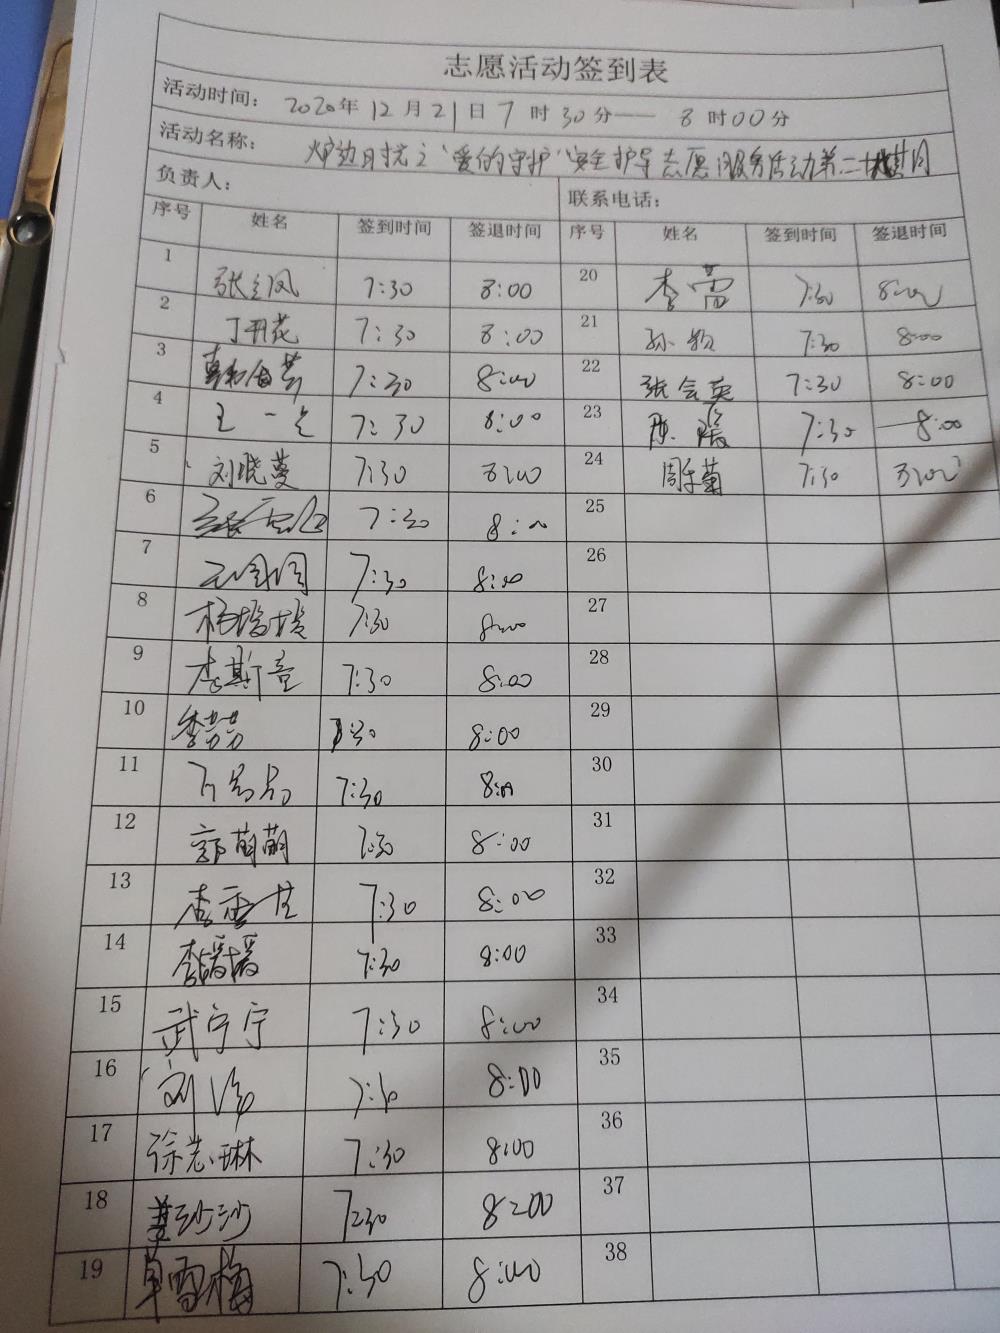 志愿活动签到表
活动时间: 2020年 12月 21日 7时 30分—— 8时00分
活动名称: 之"爱的守护"安全护导志愿服务活动第二十
负责人: 联系电话:
序号 姓名 签到时间 签退时间 序号 姓名 签到时间 签退时间
1 张立凤 7:30 8:00 20 李雷 7:30 8:00
2 丁开花 7:30 8:00 21 孙 7:30 8:00
3 7:30 8:00 22 张会英 7:30 8:00
4 王一 7:30 8:00 23 陈 7:30 8:00
5 刘晓蔓 7:30 8:00 24 周午菊 7:30 8:00
6 7:30 8:00 25
7 7:30 8:00 26
8 杨 7:30 8:00 27
9 李斯童 7:30 8:00 28
10 李芸芸 7:30 8:00 29
11 7:30 8:00 30
12 郭萌萌 7:30 8:00 31
13 李 7:30 8:00 32
14 李媛媛 7:30 8:00 33
15 武宁宁 7:30 8:00 34
16 刘 7:30 8:00 35
17 徐志琳 7:30 8:00 36
18 姜沙沙 7:30 8:00 37
19 单雪梅 7:30 8:00 38